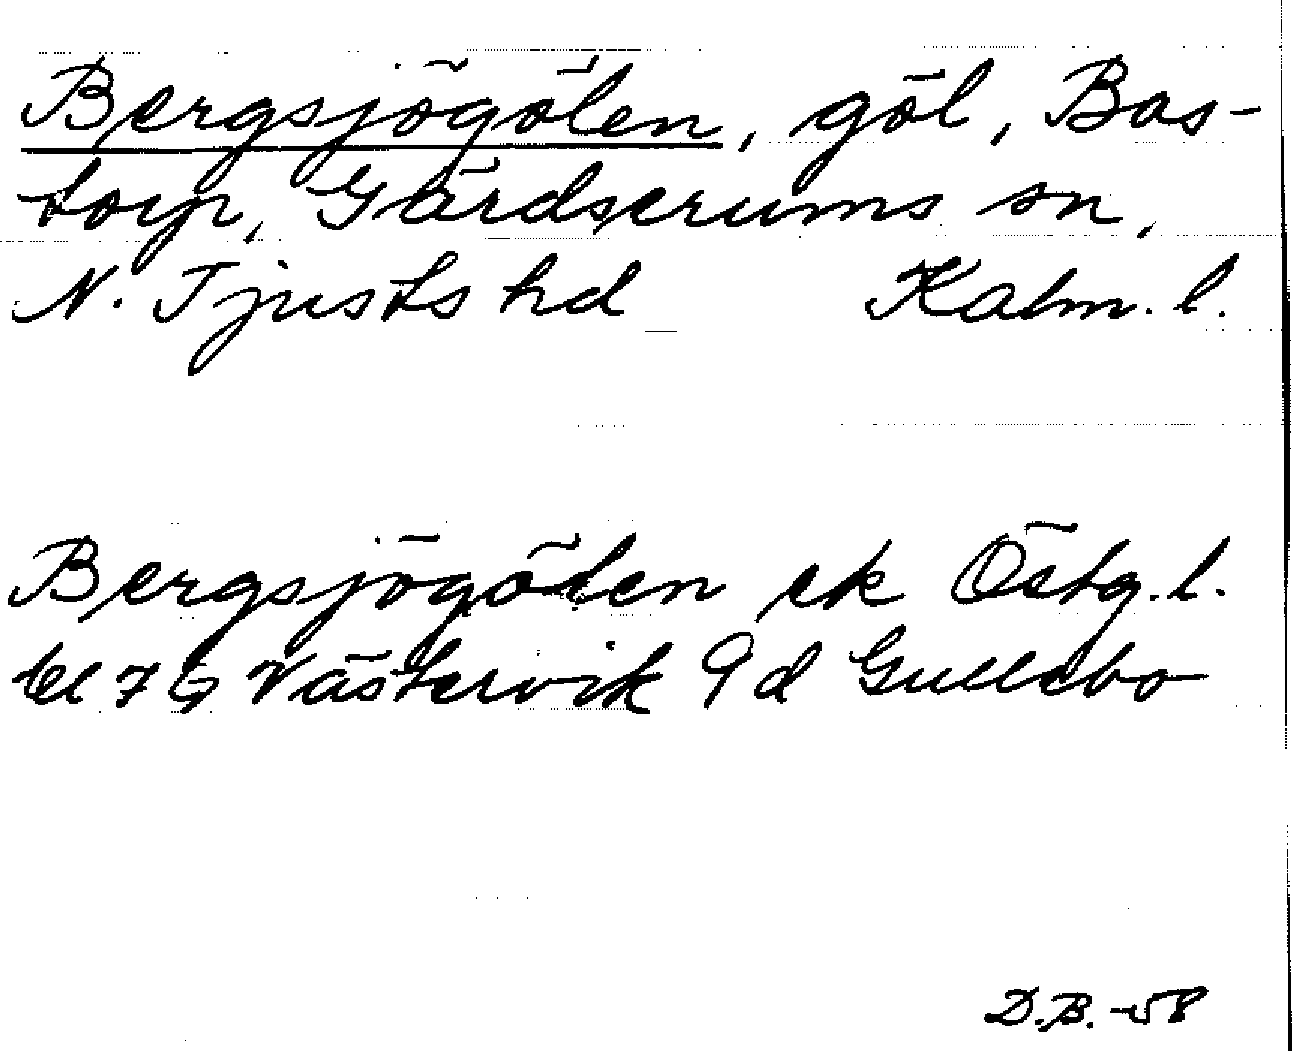 Bergsjögölen, göl, Bas-
torp, Gärdserums sn,
N. Tjusts hd Kalm. l.
Bergsjögölen ek Östg. l.
bl 76 Västervik 9 d Gullebo
D.B. -58